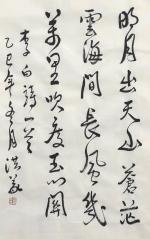 明月出天山蒼茫
雲海間長風幾
萬里吹度玉門關
李白詩一首
乙巳年冬月洪義